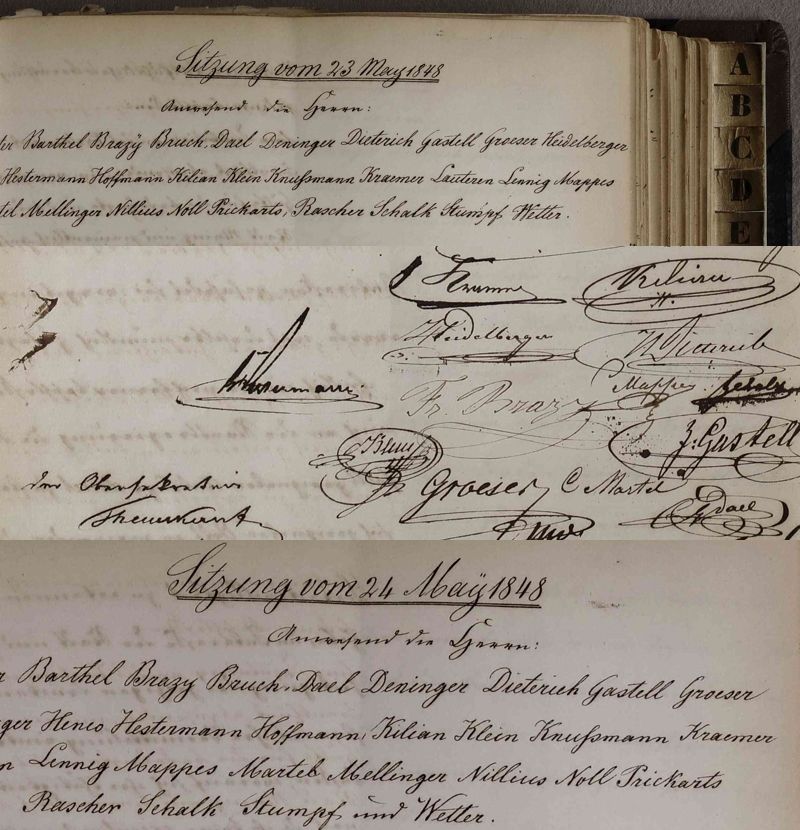 Sitzung vom 23 May 1848
Anwesend die Herrn:
Barthel Brazÿ Bruch. Dael Deninger Dieterich Gastell Groeser Heidelberger
Hestermann Hoffmann Kilian Klein Knußmann Kraemer Lauteren Lennig Mappes
Mellinger Nillius Noll Prickarts, Rascher Schalk Stumpf Wetter.
A
B
C
D
E
Kilian
Heidelberger
Dieterich
Fr. Brazy
Mappes
J. Gastell
Groeser C Martel
Dael
der Obersekretair
Sitzung vom 24 Maÿ 1848
Anwesend die Herrn:
Barthel Brazy Bruch. Dael Deninger Dieterich Gastell Groeser
Henco Hestermann Hoffmann, Kilian Klein Knußmann Kraemer
Lennig Mappes Martel Mellinger Nillius Noll Prickarts
Rascher Schalk Stumpf und Wetter.